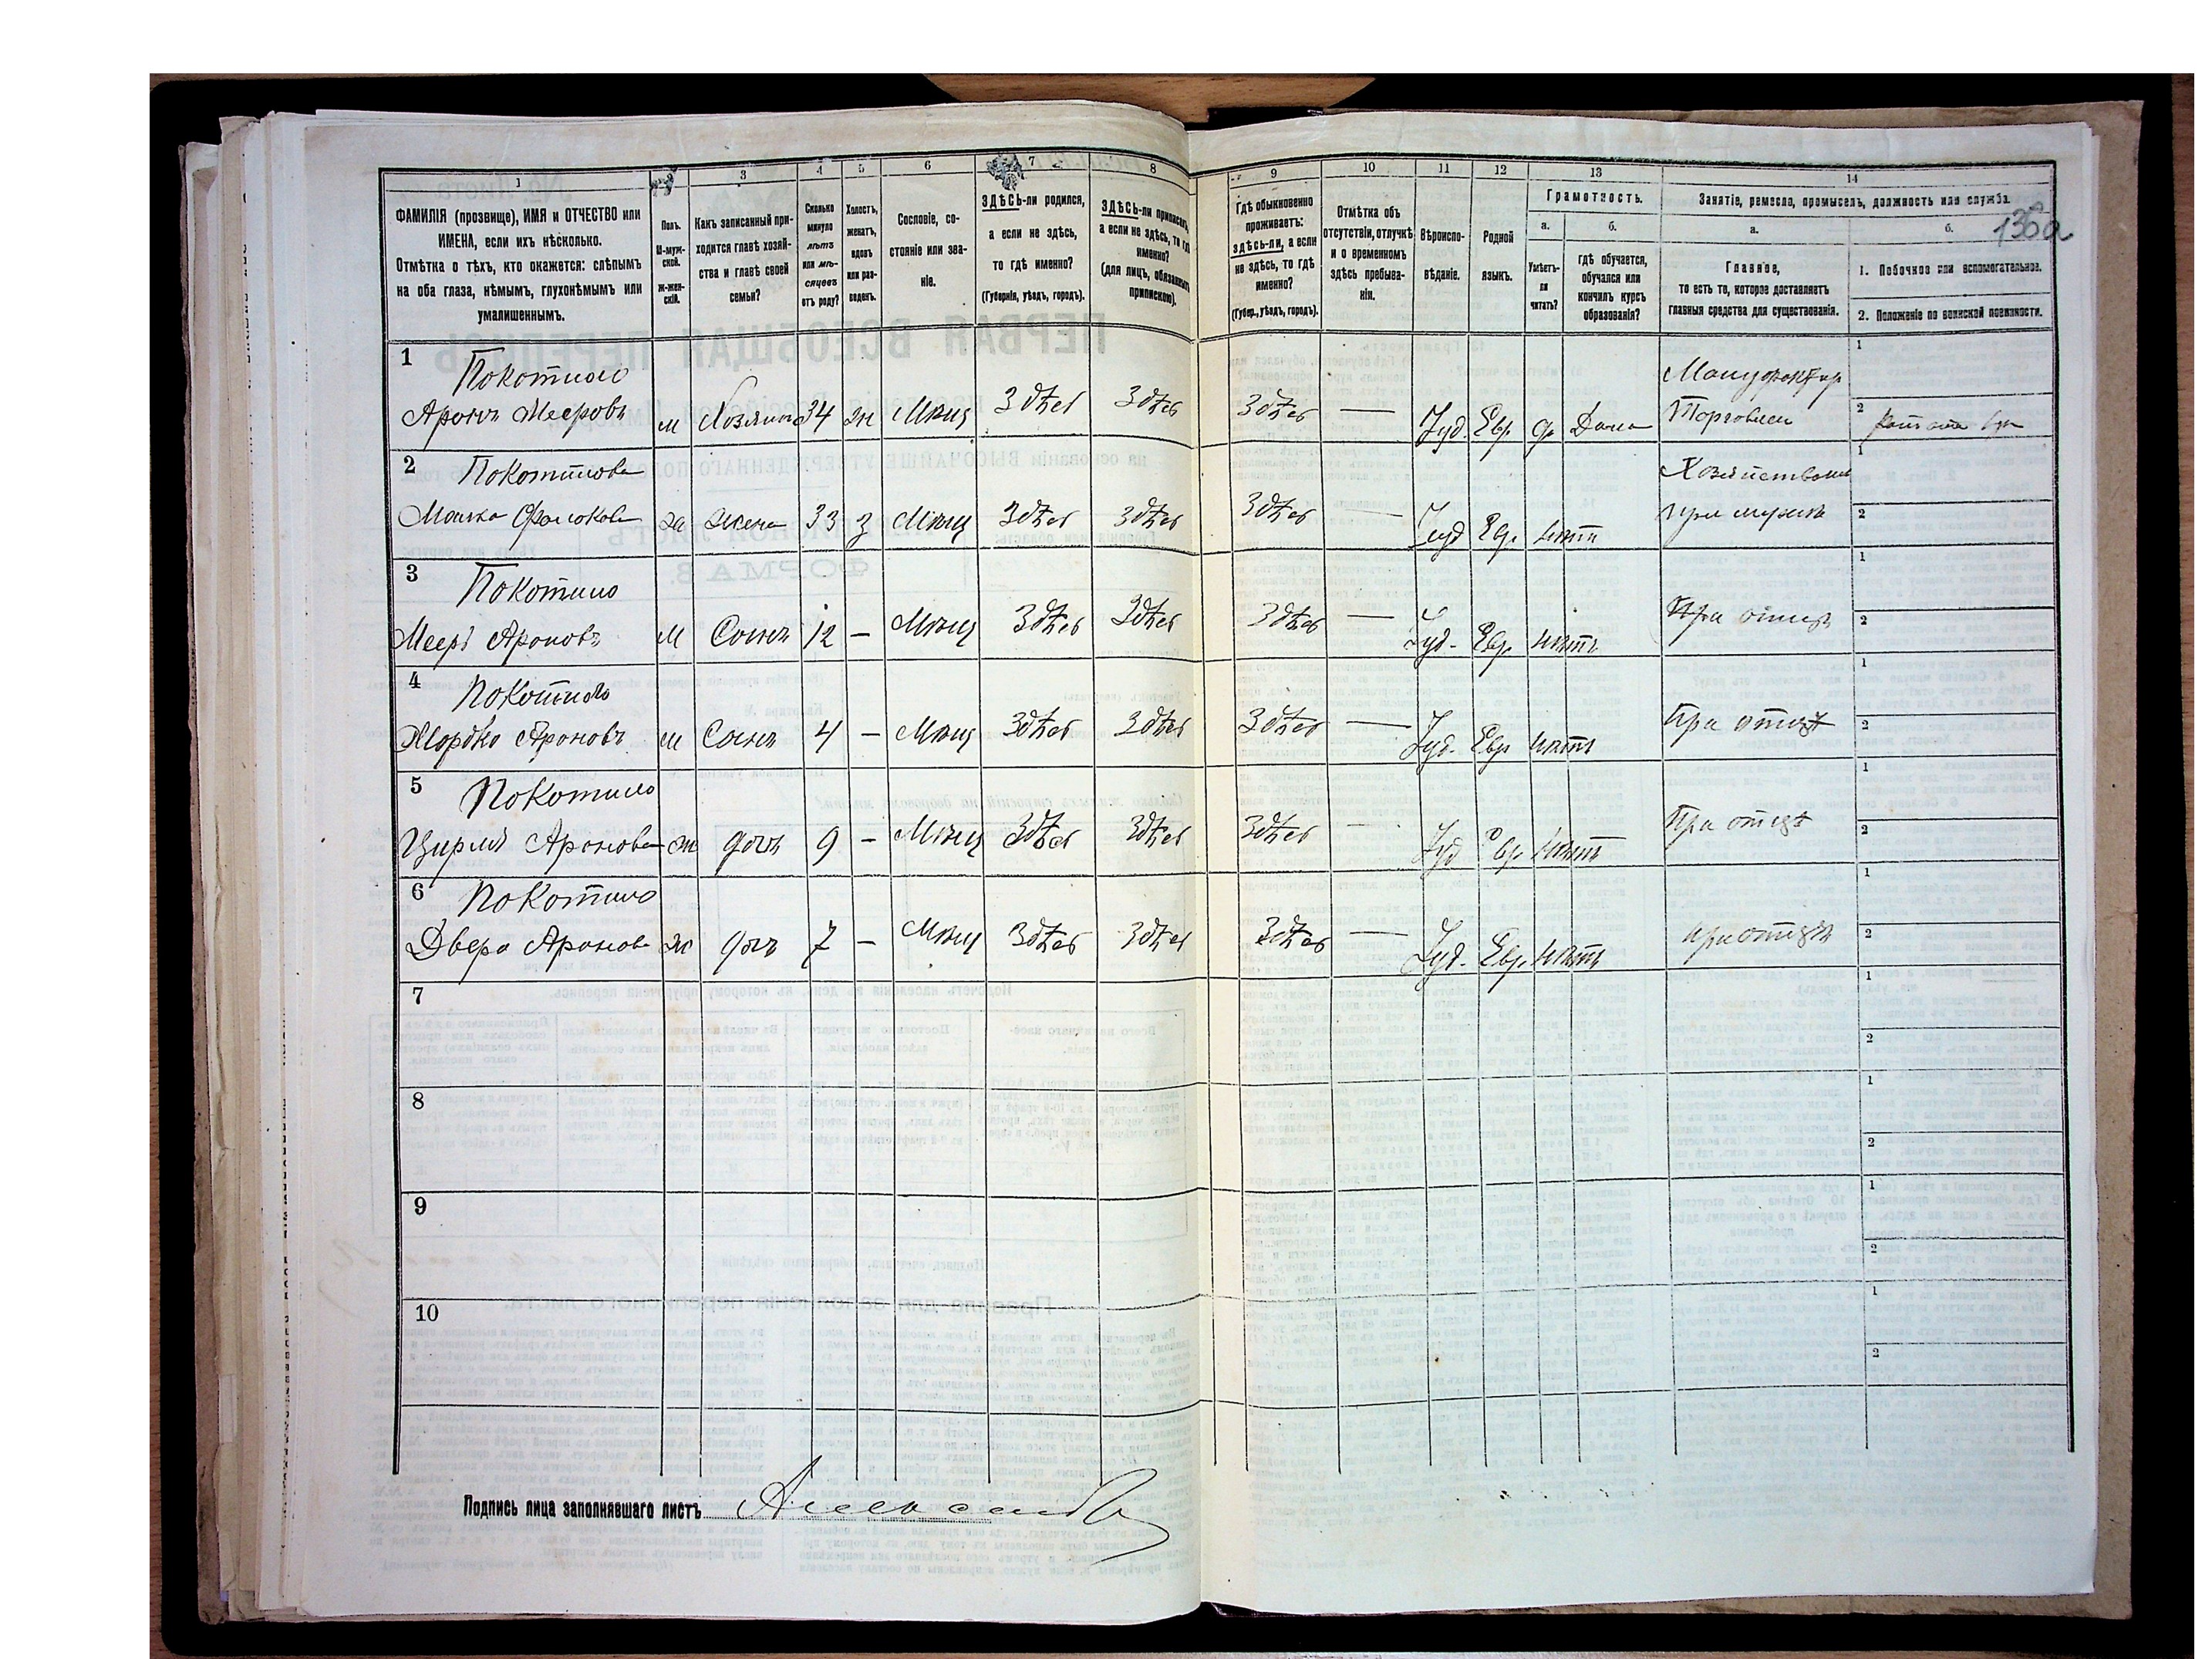 1 2 3 4 5 6 7 8 9 10 11 12 13 14
ФАМИЛІЯ (прозвище), ИМЯ и ОТЧЕСТВО или
ИМЕНА, если ихъ нѣсколько.
Отмѣтка о тѣхъ, кто окажется: слѣпымъ
на оба глаза, нѣмымъ, глухонѣмымъ или
умалишеннымъ.
Полъ.
М-муж-
ской.
ж-жен-
скій.
Какъ записанный при-
ходится главѣ хозяй-
ства и главѣ своей
семьи?
Сколько
минуло
лѣтъ
или мѣ-
сяцевъ
отъ роду?
Холостъ,
женатъ,
вдовъ
или раз-
веденъ.
Сословіе, со-
стояніе или зва-
ніе.
ЗДѢСЬ-ли родился,
а если не здѣсь,
то гдѣ именно?
(Губернія, уѣздъ, городъ).
ЗДѢСЬ-ли приписанъ,
а если не здѣсь, то гдѣ
именно?
(для лицъ, обязанныхъ
припискою).
Гдѣ обыкновенно
проживаетъ:
здѣсь-ли, а если
не здѣсь, то гдѣ
именно?
(Губер., уѣздъ, городъ).
Отмѣтка объ
отсутствіи, отлучкѣ
и о временномъ
здѣсь пребыва-
нія.
Вѣроиспо-
вѣданіе.
Родной
языкъ.
Грамотность.
а. б.
Умѣетъ-
ли
читать?
гдѣ обучается,
обучался или
кончилъ курсъ
образованія?
Занятіе, ремесло, промыселъ, должность или служба.
а. б.
Главное,
то есть то, которое доставляетъ
главныя средства для существованія.
1. Побочное или вспомогательное.
2. Положеніе по воинской повинности.
1 Покотило Мануфактур 1
Аронъ Мееровъ м Хозяинъ 34 ж Мѣщ Здѣсь Здѣсь Здѣсь — Іуд. Евр да Дома Торговли 2
2 Покотилова Хозяйствомъ 1
ж жена 33 з Мѣщ Здѣсь Здѣсь Здѣсь — Іуд Евр нѣтъ при мужѣ 2
3 Покотило 1
Мееръ Ароновъ м Сынъ 12 — Мѣщ Здѣсь Здѣсь Здѣсь — Іуд. Евр нѣтъ При отцѣ 2
4 Покотило 1
Мордко Ароновъ м Сынъ 4 — Мѣщ Здѣсь Здѣсь Здѣсь — Іуд. Евр нѣтъ При отцѣ 2
5 Покотило 1
Цирля Аронова ж дочь 9 — Мѣщ Здѣсь Здѣсь Здѣсь — Іуд Евр нѣтъ При отцѣ 2
6 Покотило 1
Двера Аронова ж дочь 7 — Мѣщ Здѣсь Здѣсь Здѣсь — Іуд. Евр. нѣтъ при отцѣ 2
7 1
2
8 1
2
9 1
2
10 1
2
Подпись лица заполнявшаго листъ